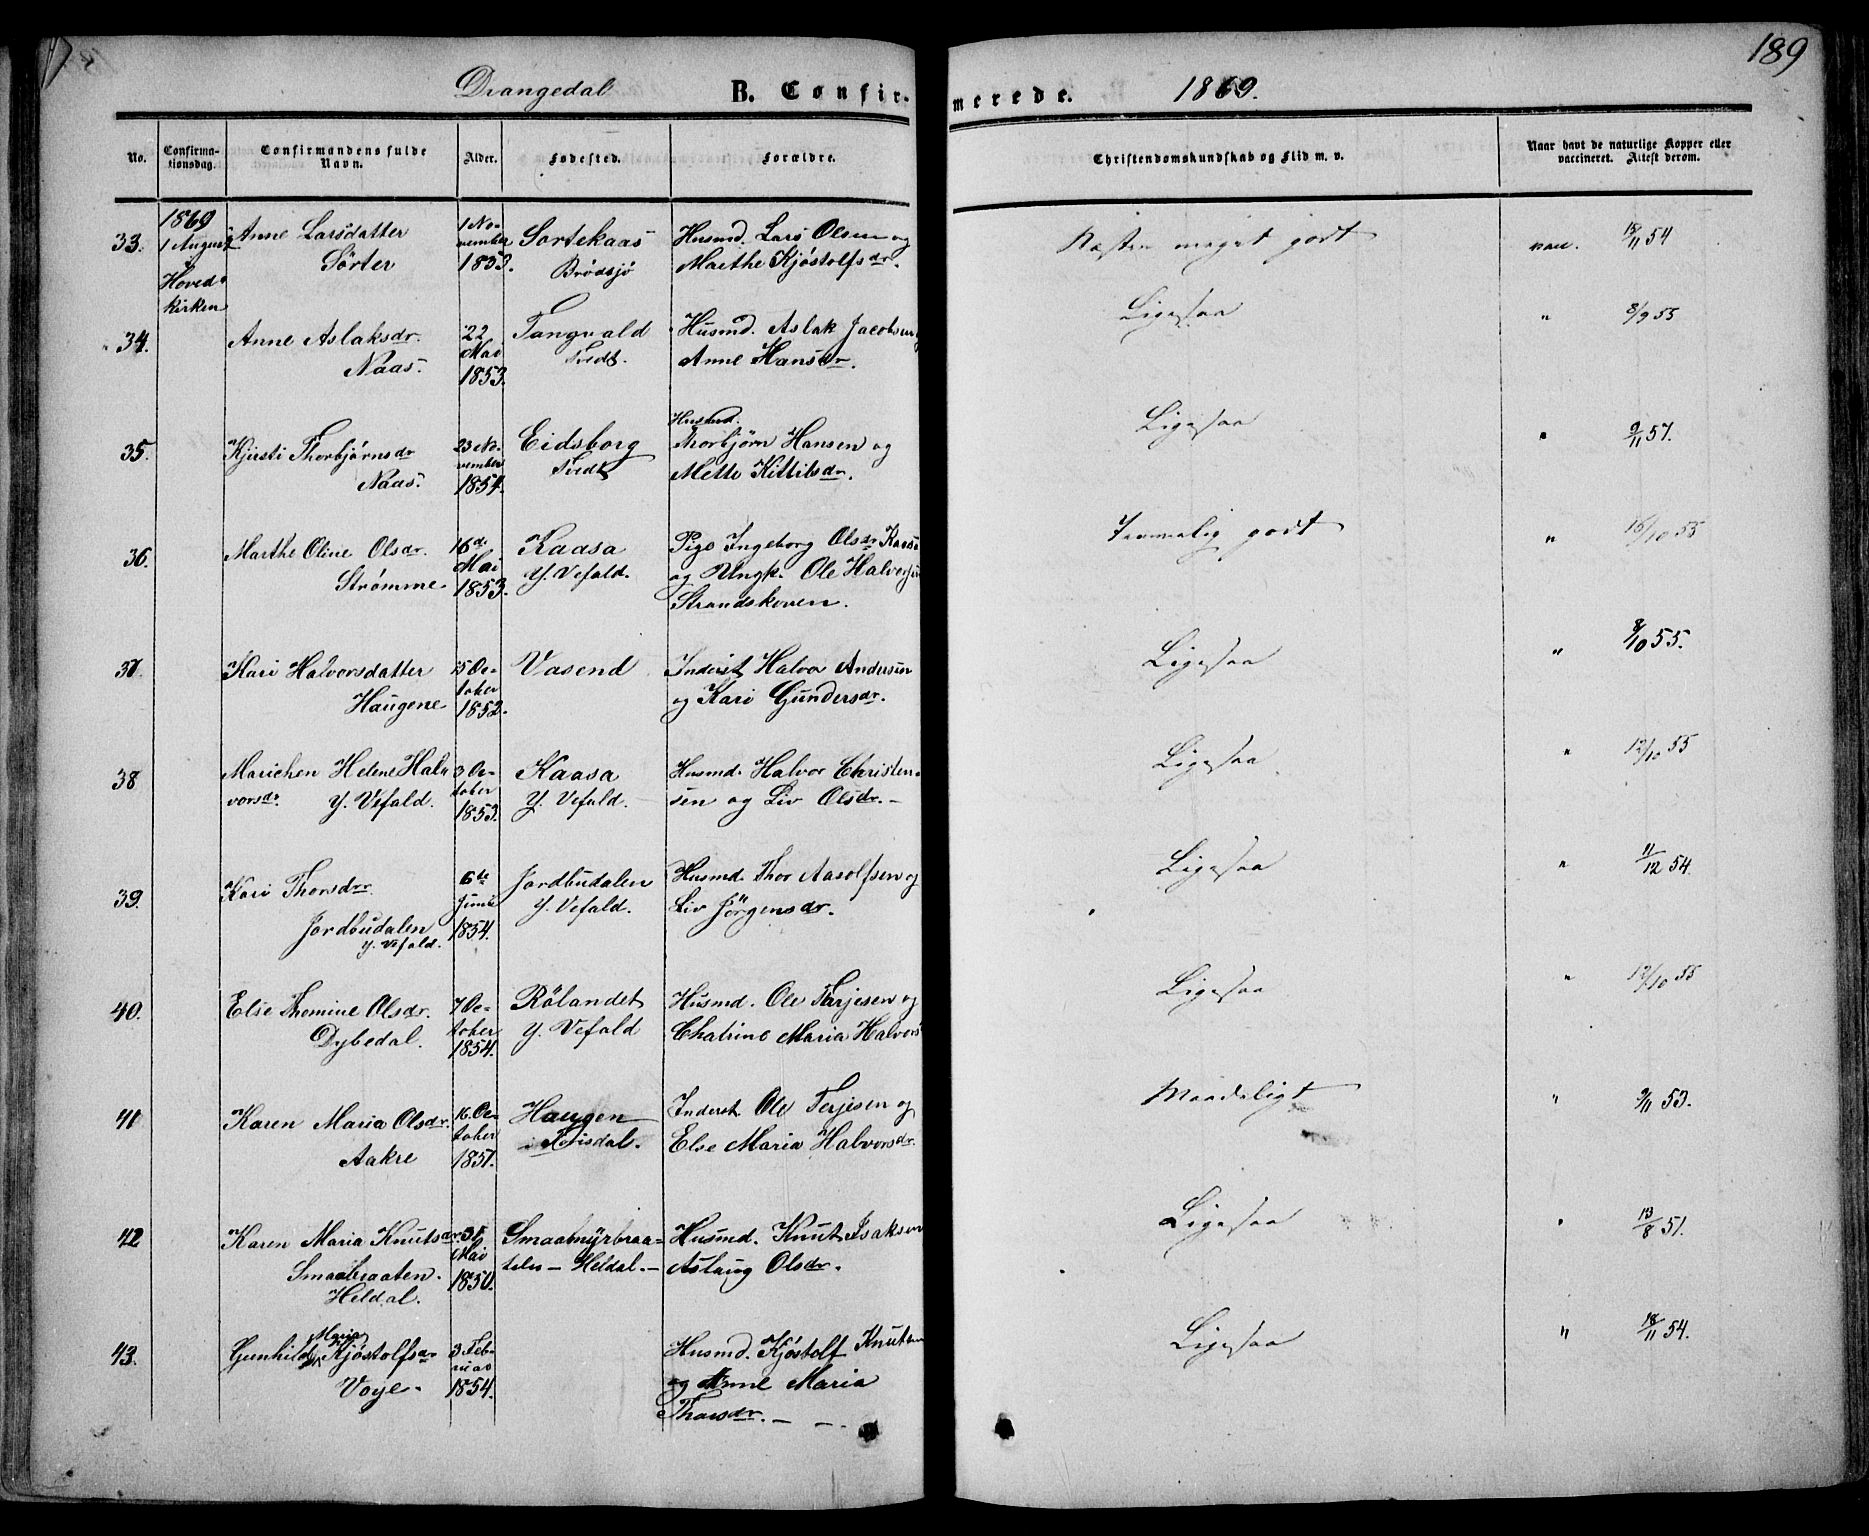 189
Drangedal B. Confirmerede. 1869.
No. Confirmationsdag. Confirmandens fulde Navn. Alder. Fødested. Forældre. Christendomskundskab og Flid m. v. Naar havt de naturlige Kopper eller vaccineret. Attest derom.
1869
1 August
i
Hoved-
kirken
33. Anne Larsdatter
Sörter
1 No-
vember
1853.
Sortekaas
Brödsjö
Husmd. Lars Olsen og
Marthe Kjöstolfsdr.
Næsten meget godt
vac. 18/11 54
34. Anne Aslaksdr.
Naas.
22
Mai
1853.
Tangvald
Tvedt.
Husmd. Aslak Jacobsen og
Anne Hansdr.
Ligesaa
" 8/9 55
35. Kjersti Thorbjörnsdr
Naas.
23 No-
vember
1854.
Eidsborg
Tvedt
Husmd.
Thorbjörn Hansen og
Mette Kittilsdr.
Ligesaa
" 9/11 57.
36. Marthe Oline Olsdr.
Strömme
16de
Mai
1853.
Kaasa
Y. Vefald.
Pige Ingeborg Olsdr Kaasa
og Ungk. Ole Halvorsen
Strandskoven.
Temmelig godt
" 16/10 55
37. Kari Halvorsdatter
Haugene
15 Oc-
tober
1852.
Vasend
Inderst Halvor Andersen
og Kari Gundersdr.
Ligesaa
" 8/10 55.
38 Marichen Helene Hal-
vorsdr. Y. Vefald.
3 Oc-
tober
1853.
Kaasa
Y. Vefald.
Husmd. Halvor Christen-
sen og Liv Olsdr.-
Ligesaa
" 12/10 55
39. Kari Thorsdr
Jordbudalen
Y. Vefald.
6te
Juni
1854.
Jordbudalen
Y. Vefald.
Husmd. Thor Aasolfsen og
Liv Jörgensdr.
Ligesaa
" 11/12 54.
40. Else Thomine Olsdr.
Dybedal.
7 Oc-
tober
1854.
Rölandet
Y. Vefald
Husmd. Ole Terjesen og
Chatrine Maria Halvors
Ligesaa
" 12/10 55
41 Karen Maria Olsdr.
Aakre
16 Oc-
tober
1851.
Haugen
i Törisdal.
Inderst Ole Terjesen og
Else Maria Halvorsdr.
Maadeligt
" 9/11 53.
42 Karen Maria Knutsdr.
Smaabraaten.
Heldal.
Mai
1850.
Smaamyrbraa-
ten - Heldal. -
Husmd. Knut Isaksen
Aslaug Olsdr.
Ligesaa
" 13/8 51.
43. Gunhild Maria Kjöstolfsdr
Voje.
3 Feb-
ruar
1854.
Husmd. Kjöstolf Knutsen
og Anne Maria
Thorsdr. - -
Ligesaa
" 18/11 54.